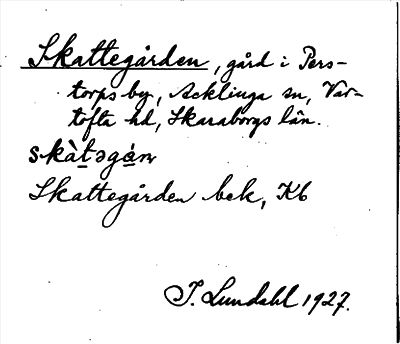 Skattegården, gård i Pers-
torps by, Acklinga sn, Var-
tofta hd, Skaraborgs län.
skàt̲əgá̲ṇ
Skattegården bek, Kb
I. Lundahl 1927.